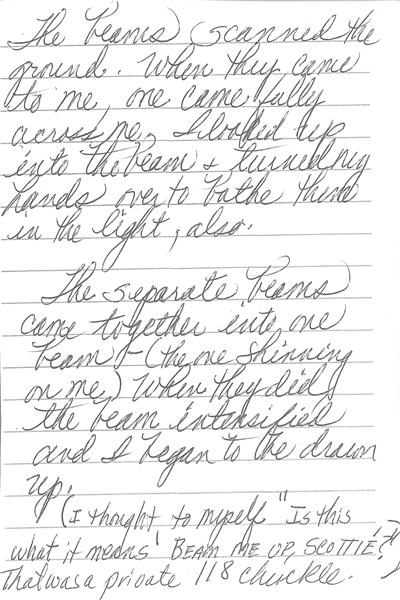 The beams scanned the
ground. When they came
to me, one came fully
across me. I looked up
into the beam & turned my
hands over to bathe them
in the light, also.
The separate beams
came together into one
beam - (the one shinning
on me.) When they did
the beam intensified
and I began to be drawn
up.
(I thought to myself "Is this
what it means 'BEAM ME UP, SCOTTIE'?"
That was a private 118 chuckle.)